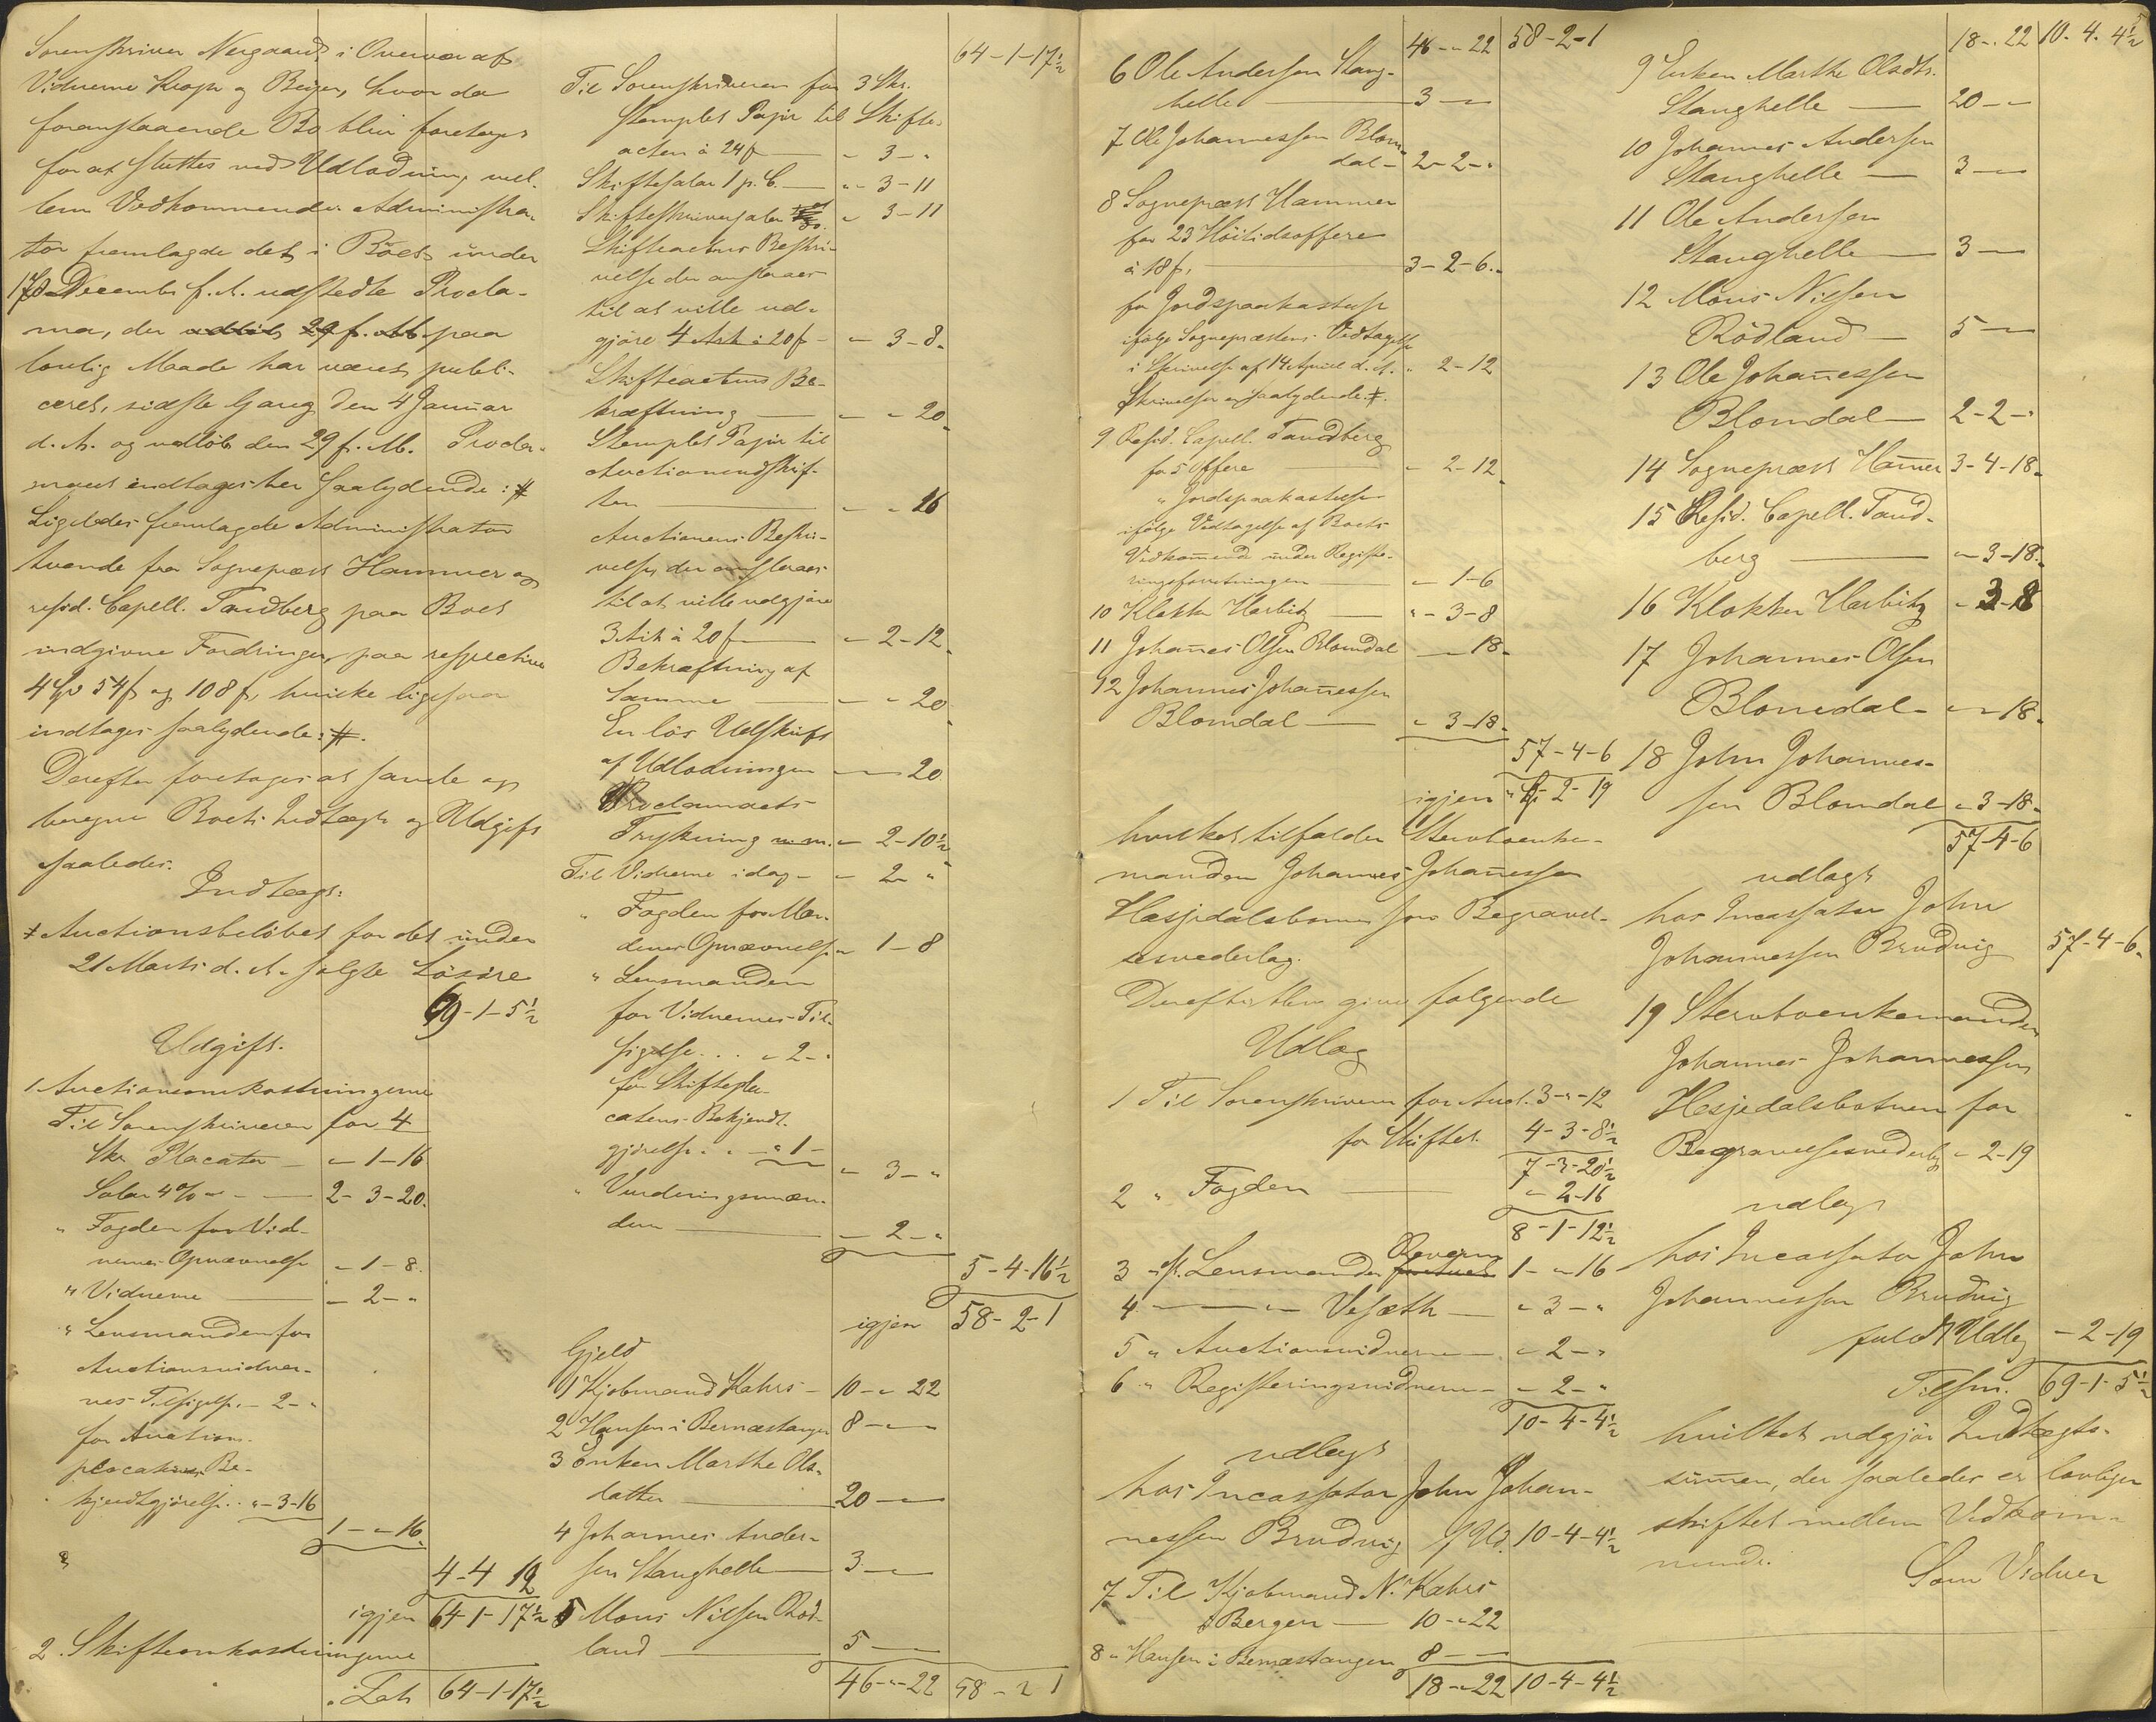 Sorenskriver Nergaard, i Overvær af
Vidnerne Krohn og Beyer, hvor da
foranstaaende Bo blev foretaget
for at sluttes ved Udlodning mel-
lem Vedkommende. Administra-
tor fremlagde det i Boet under
17de December f. A. udstedte Procla-
ma, der udløb 29 f. M. paa
lovlig Maade har været publi-
ceret, sidste Gang den 4 Januar
d. A. og udløb den 29 f. M. Procla-
maet indtages her saalydende: #
Ligeledes fremlagde Administrator
tvende fra Sognepræst Hammer og
resid. Capell. Tandberg paa Boet
indgivne Fordringer, paa respective
4 Spd 54 s og 108 s, hvilke ligesaa
indtages saalydende: #.
Derefter foretoges at samle og
beregne Boets Indtægt og Udgift
saaledes:
Indtægt:
# Auctionsbeløbet for det under
21 Marts d. A. solgte Løsøre
69-1-5½
Udgift.
1 Auctionsomkostningerne
Til Sorenskriveren for 4
Skr. Placater - " - 1-16
Salar 4% - 2-3-20.
" Fogden for Vid-
nernes Opnævnelse " - 1-8.
" Vidnerne - 2 - "
" Lensmanden for
Auctionsvidner-
nes Tilsigelse. - 2 - "
for Auctions-
placatens Be-
kjendtgjørelse.. " - 3-16
1 - " - 16.
4-4 12
igjen 64-1-17½
2. Skifteomkostningerne
Lat. 64-1-17½
64-1-17½
Til Sorenskriveren for 3 Skr.
Stemplet Papir til Skifte-
acten à 24 s - " 3 - "
Skiftesalar 1 p. C. - " - 3-11
Skifteskriversalar - " 3-11
Skifteactens Beskri-
velse der ansláaes
til at ville ud-
gjøre 4 Ark à 20 s - " 3-8.
Skifteactens Be-
kræftning - " - " 20.
Stemplet Papir til
Auctionsudskrif-
ten - " - " 16
Auctionens Beskri-
velse, der ansláaes
til at ville udgjøre
3 Ark à 20 s - " 2-12.
Bekræftning af
Samme - " - " 20
En løs Udskrift
af Udlodningen - " 20
Proclamaets
Trykning m. m. " 2-10½
Til Vidnerne idag - " 2 - "
" Fogden for Mæn-
denes Opnævnelse " 1-8
" Lensmanden
for Vidnernes Til-
sigelse... " 2 - "
for Skiftepla-
catens Bekjendt-
gjørelse.. " - " 1 -
" 3 - "
" Vurderingsmæn-
dene - 2 - "
5-4-16½
igjen 58-2-1
Gjeld
1 Kjøbmand Kahrs - 10 - " 22
2 Hansen i Bernæstangen 8 - "
3 Enken Marthe Ols-
datter 20 - "
4 Johannes Ander-
sen Stanghelle 3 - "
5 Mons Nilsen Rød-
land 5 -
46 - " - 22 58-2 1
46 - " 22 58-2-1
6 Ole Andersen Stang-
helle 3 - "
7 Ole Johannessen Blom-
dal - 2-2 - "
8 Sognepræst Hammer
for 23 Høitidsoffere
à 18 s, 3-2-6.
for Jordspaakastelse
ifølge Sognepræstens Vedtagelse
i Skrivelse af 14 April d. A. " 2-12
Skrivelsen er saalydende: #.
9 Resid. Capell. Tandberg
for 5 Offere - 2-12.
" Jordspaakastelse
ifølge Vedtagelse af Boets
Vedkommende under Registe-
ringsforretningen " 1-6
10 Klokker Harbitz " - 3-8
11 Johannes Olsen Blomdal - " 18.
12 Johannes Johannessen
Blomdal - " 3-18.
57-4-6
igjen " 2-19
hvilket tilfalder Stervboenke-
manden Johannes Johannessen
Hesjedalsbotnen for Begravel-
sesvederlag.
Derefter blev givet følgende
Udlæg
1 Til Sorenskriveren for Auct. 3 - " - 12
for Skiftet. 4-3-8½
7-3-20½
2 " Fogden " 2-16
8-1-12½
3 " Lensmanden 1 - " 16
4 " Vesæth " 3 - "
5 " Auctionsvidnerne " 2 - "
6 " Registeringsvidnerne " 2 - "
10-4-4½
udlagt
hos Incassator John Johan-
nessen Brudvig 10-4-4½
7 Til Kjøbmand N. Kahrs
i Bergen - 10 - " 22
8 " Hansen i Bernæstangen 8 - "
18 - " 22 10-4-4½
18 - " 22 10. 4. 4½
9 Enken Marthe Olsdtr.
Stanghelle 20 - "
10 Johannes Andersen
Stanghelle 3 - "
11 Ole Andersen
Stanghelle 3 - "
12 Mons Nilsen
Rødland 5 - "
13 Ole Johannessen
Blomdal 2-2 - "
14 Sognepræst Hammer 3-4-18.
15 Resid. Capell. Tand-
berg " 3-18.
16 Klokker Harbitz " 3-8
17 Johannes Olsen
Blomdal - " " 18.
18 John Johannes-
sen Blomdal " 3-18.
57-4-6
udlagt
hos Incassator John
Johannessen Brudvig 57-4-6.
19 Stervboenkemanden
Johannes Johannessen
Hesjedalsbotnen for
Begravelsesvederlag " 2-19
udlagt
hos Incassator John
Johannessen Brudvig
fuldt Udlæg - 2-19
Tilsm. 69-1-5½
hvilket udgjør Indtægts-
summen, der saaledes er lovligen
skiftet mellem Vedkom-
mende.
Som Vidner